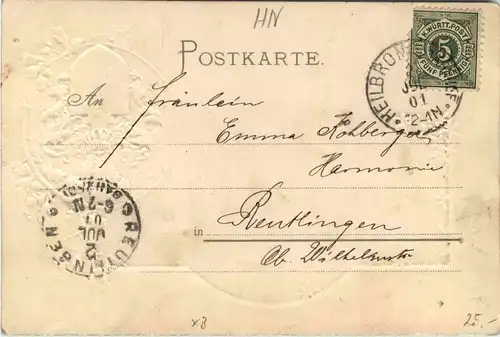 HN
K. WÜRTT. POST
5
FÜNF PFENNIG
POSTKARTE.
HEILBRONN
01
12-1N.
An Fräulein
Emma Kohberger
Harmonie
in Reutlingen
Ob. Wilhelmstr
REUTLINGEN
2
JUL
01
6-7N
BAHNHOF
xB
25.-